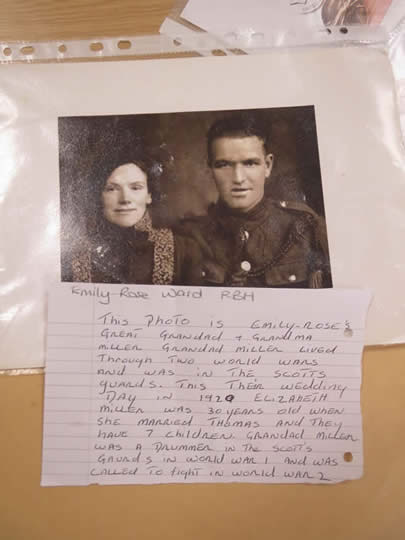 Emily-Rose Ward RBH
THIS PHOTO IS EMILY-ROSE'S
GREAT GRANDAD + GRANDMA
MILLER GRANDAD MILLER LIVED
THROUGH TWO WORLD WARS
AND WAS IN THE SCOTTS
GUARDS. THIS THEIR WEDDING
DAY IN 1929 ELIZABETH
MILLER WAS 30 YEARS OLD WHEN
SHE MARRIED THOMAS AND THEY
HAVE 7 CHILDREN. GRANDAD MILLER
WAS A DRUMMER IN THE SCOTTS
GAURDS IN WORLD WAR 1 AND WAS
CALLED TO FIGHT IN WORLD WAR 2